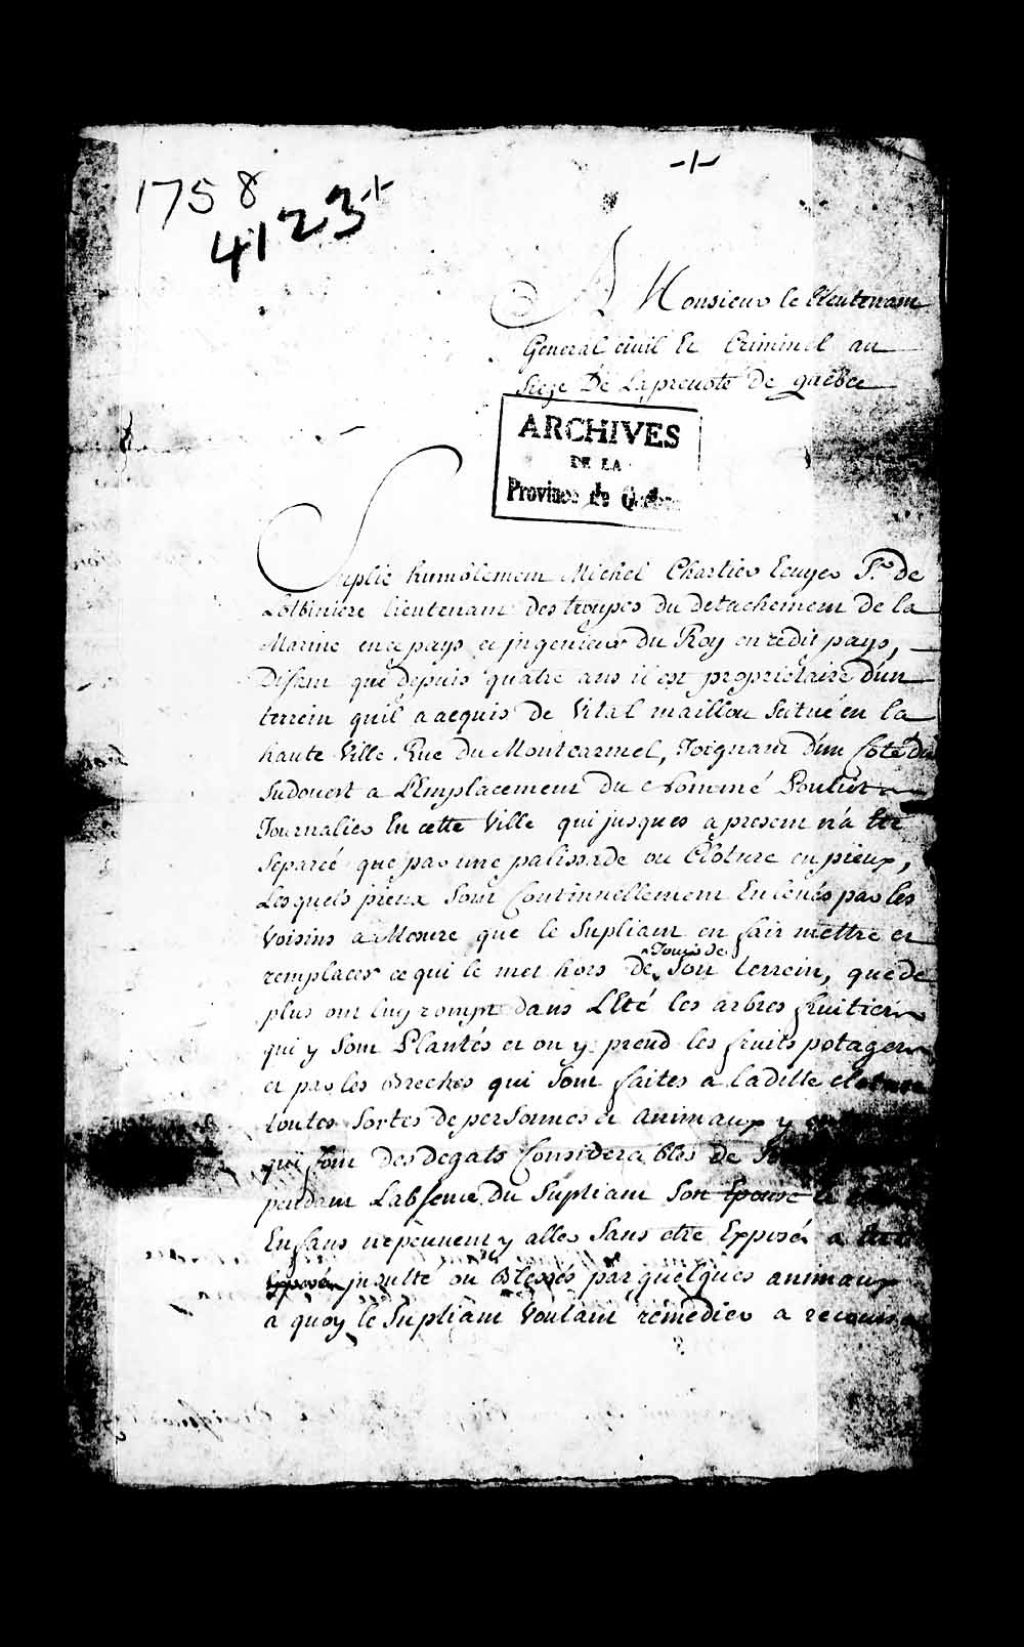 1758
4123+
A Monsieur le Lieutenant
General civil Et Criminel au
Siege De La prevoté de quebec
ARCHIVES
DE LA
Province de Quebec
Suplie humblement Michel Chartier Ecuyer Sr. de
Lotbiniere lieutenant des troupes du detachement de la
Marine en ce pays et jngenieur du Roy en cedit pays,
Disant que depuis quatre ans il est proprietaire d'un
terrein quil a acquis de Vital maillou Scitué en la
haute Ville Rue Du Montcarmel, Joignant D'un Coté du
Sudouest a L'Emplacement Du Nommé Pouliot
Journalier En cette Ville qui jusques a present n'a Eté
Separeé que par une palissade ou Cloture en pieux,
Lesquels pieux Sont Continuellement Enlevés par les
Voisins a Mesure que le Supliant en fait mettre et
remplacer ce qui le met hors de Jouir de Son terrein, que de
plus on luy rompt dans L'Eté les arbres fruitiers
qui y Sont Plantés et on y prend les fruits potagers
et par les Breches qui Sont faites a Ladite cloture
toutes Sortes de personnes et animaux y
qui font Des degats Considerables de
pendant L'absence Du Supliant Son Epouse et
Enfans n'epeuvent y aller Sans etre Exposés a
Exposés jnsulté ou Blessés par quelques animaux
a quoy le Supliant Voulant remedier a recours